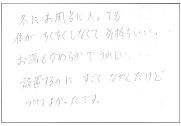 冬にお風呂に入っても
体がちくちくしなくて気持ちいい。
お湯もなめらかでうれしい。
設置するのに すごく なやんだけど
つけてよかったです。